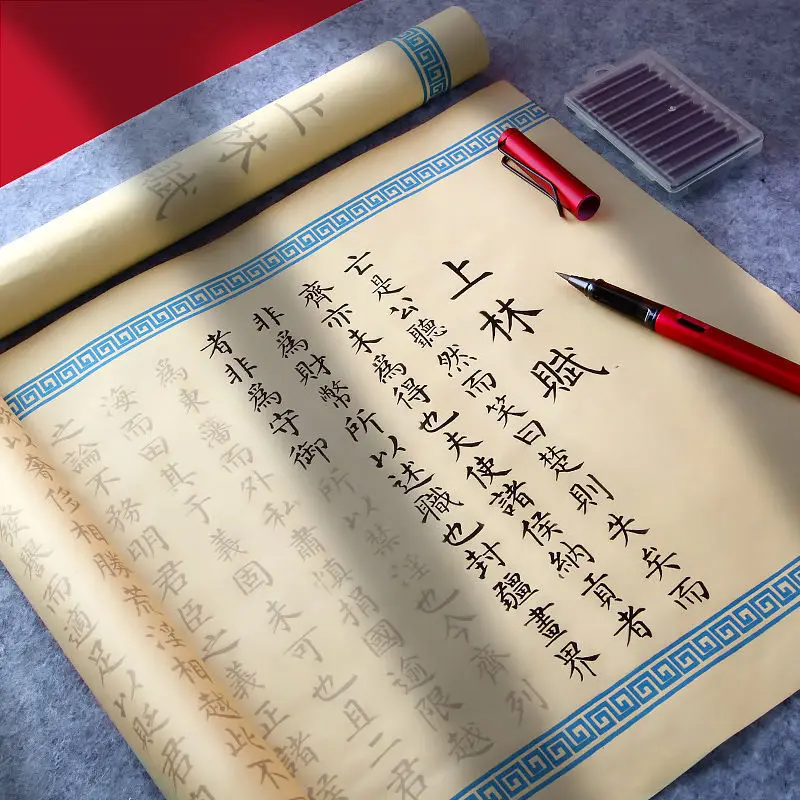 上林賦
上林賦
亡是公聽然而笑曰楚則失矣而
齊亦未為得也夫使諸侯納貢者
非為財幣所以述職也封疆畫界
者非為守御所以禁淫也今齊列
為東藩而外私肅慎捐國逾限越
海而田其于義固未可也且二君
之論不務明君臣之義正諸侯
以奢侈相勝荒淫相越此不
發譽而適足以貶君